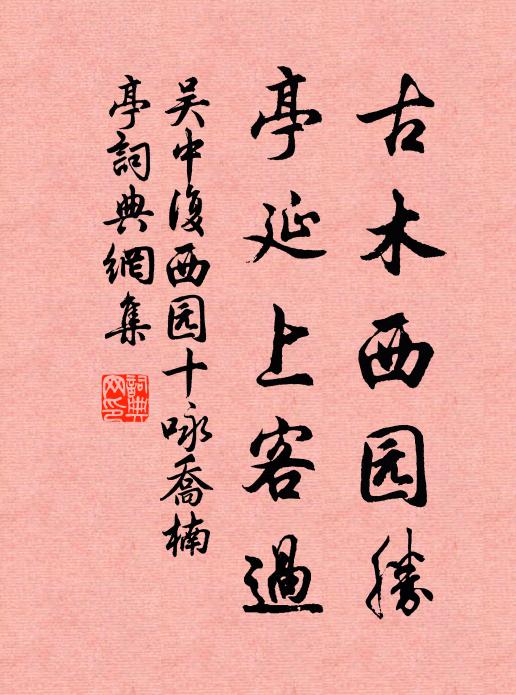 古木西园勝
亭延上客過
吴中復西园十咏喬楠
亭詞典網集
詞典网印